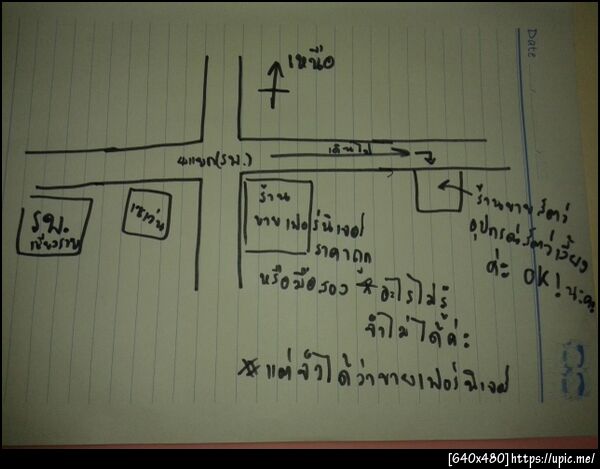 Date
เหนือ
4แยก(รพ.)
เดินไป
รพ.
เชียงราย
เซเว่น
ร้าน
ขายเฟอร์นิเจอร์
ราคาถูก
หรือมือสอง * อะไรไม่รู้
จำไม่ได้ค่ะ
** แต่จำได้ว่าขายเฟอร์นิเจอร์
ร้านขายสัตว์
อุปกรณ์สัตว์เลี้ยง
ค่ะ OK! นะคะ
[640x480]https://upic.me/